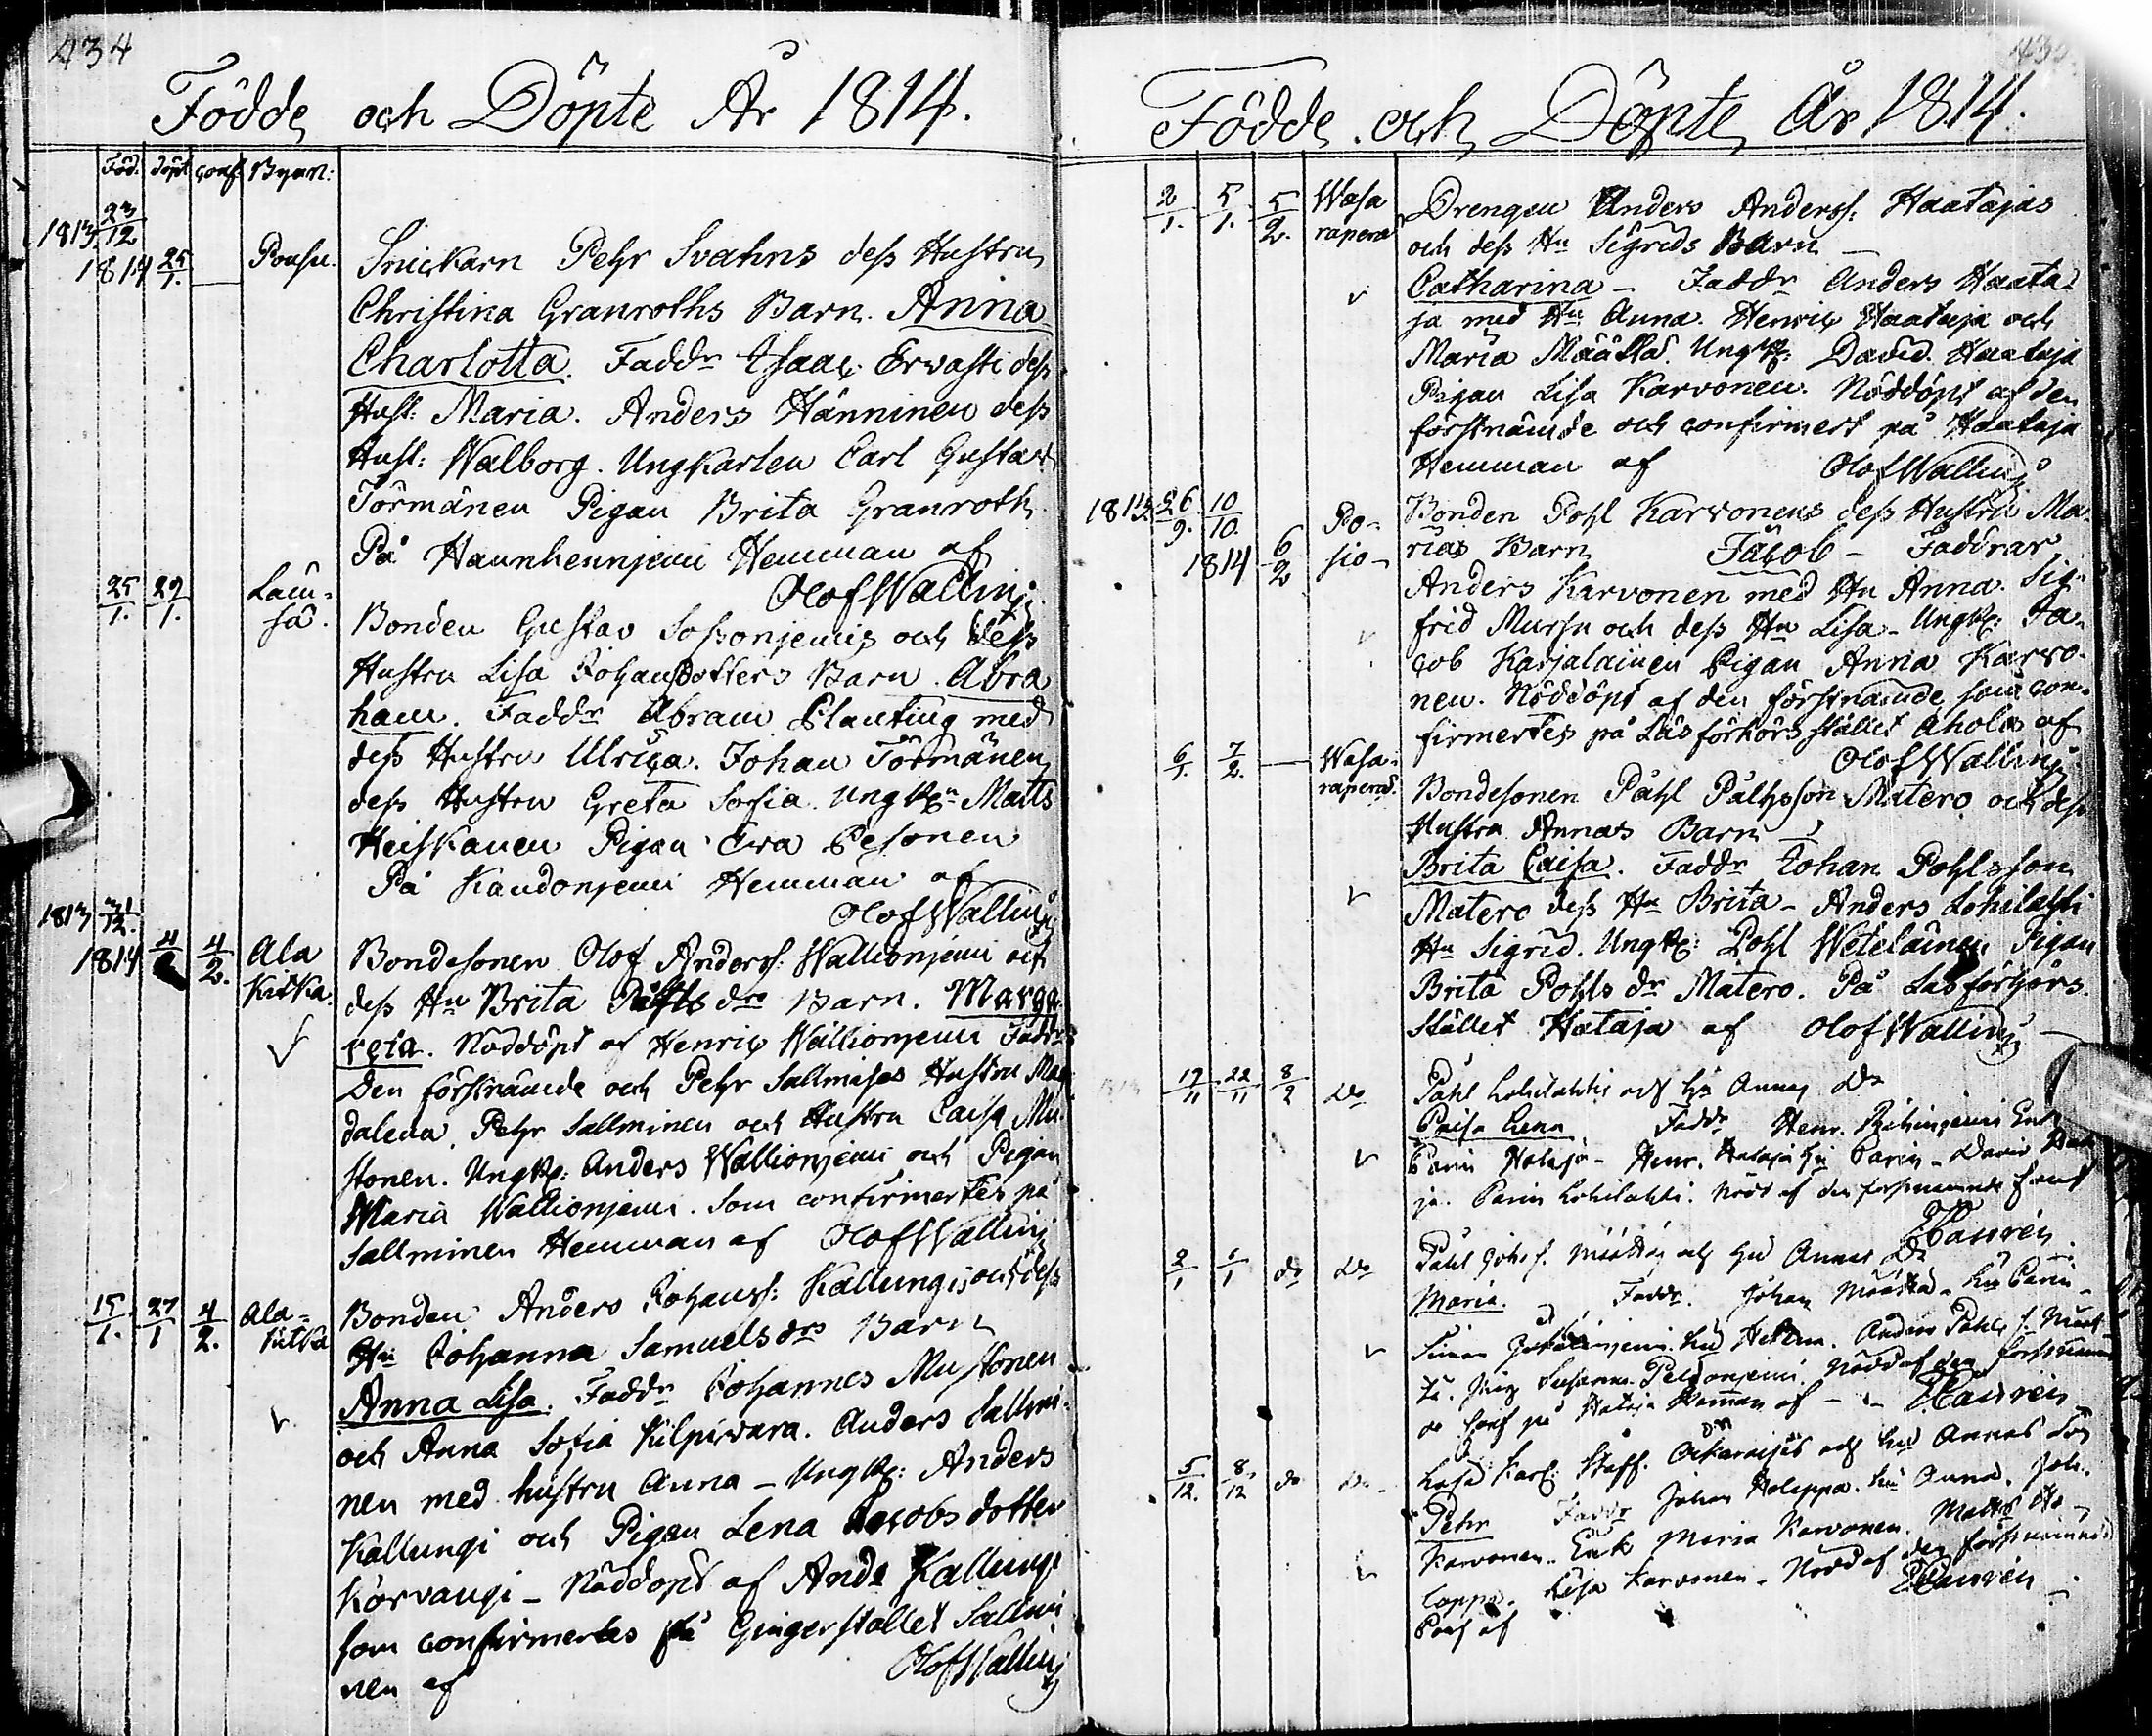 434
Födde och Döpte År 1814.
Föd. döpt conf. Byarn:
1813 23/12
1814 25/1. — Pousu. Snickarn Pehr Svahns dess Hustru
Christina Granroths Barn. Anna
Charlotta. Faddr Isaac Ervasti dess
Hust: Maria. Anders Hänninen dess
Hust: Walborg. Ungkarlen Carl Gustav
Törmänen Pigan Brita Granroth
På Hemman af
Olof Wallin
25/1. 29/1. Bonden Gustav och dess
Hustru Lisa Johansdotters Barn. Abra
ham. Faddr Abram Planting med
dess Hustru Ulrica. Johan Törmänen
dess Hustru Greta Sofia. Matts
Heiskanen Pigan Eva Pesonen
På Hemman af
Olof Wallin
1813 31/12.
1814 4/2. Ala Bondesonen Olof Anderss: Wallionjemi och
Kitka. dess Hu Brita drs Barn. Marga
reta. Nöddöpt af Henric Wallionjemi Faddr
Den förstnämde och Pehr Sallmises Hustru Mag
dalena. Pehr Sallminen och Hustru Caisa Mu
stonen. Anders Wallionjemi och Pigan
Maria Wallionjemi. Som confirmertes på
Sallminen Hemman af Olof Wallin
15/1. 27/1 4/2. Ala- Bonden Anders Johanss: Kallungis och dess
kitka Hu Johanna Samuelsdrs Barn
Anna Lisa. Faddr Johannes Mustonen
och Anna Sofia Kilpivara. Anders Sallmi-
nen med hustru Anna – Anders
Kallungi och Pigan Lena Jacobs dotter
Korvangi – Nöddöpt af Ands Kallungi
som confirmertes på Salmi
nen af Olof Wallin
Födde och Döpte År 1814.
2/1. 5/1. 5/2. Wasa Drengen Anders Anderss: Haatajas
rapera och dess Hu Sigrids Barn –
Catharina – Faddr Anders Haata-
ja med Hu Anna. Henric Haataja och
Maria Määttä. David Haataja
Pigan Lisa Karvonen. Nöddöpt af den
förstnämde och confirmert på Haataja
Hemman af Olof Wallin
1813 26/9. 10/10. Po- Bonden Pohl Karvonens dess Hustru Ma-
1814 6/2 sio- rias Barn Jacob – Faddrar
Anders Karvonen med Hu Anna. Sig-
frid Mursu och dess Hu Lisa – Ja-
cob Karjalainen Pigan Anna Karvo-
nen. Nöddöpt af den förstnämde som con-
firmertes på Läsförhörs stället Ahola af
Olof Wallin
6/1. 7/2. — Wasa-
rapera. Bondesonen Påhl Påhlsson Matero och dess
Hustru Annas Barn
Brita Caisa. Faddr Johan Pohlsson
Matero dess Hu Brita – Anders Lohilahti
Hu Sigrid. Pohl Wetelainen Pigan
Brita Pohls dr Matero. På Läsförhörs
stället Hataja af Olof Wallin
1813 17/11 22/11 8/2 do Påhl Lohilahtis och Hu Annas do
Caisa Lena Faddr Henr.
Carin Hataja – Henr. Hataja Hu Carin – David Hata
ja. Carin Lohilahti. Nödd af den förstnämnde
Hauren
2/1 do do Påhl och Hu Annas do
Maria. Faddr. Johan Määttä – Hu Carin –
Simon Hu Helena. Anders Påhls s.
Susanna Nödd af den förstnämnde
conf på Hataja Hemman af – Hauren
5/12. 8/12 do do Karl: Staff. och Hus Annas Son
Pehr Faddr Johan Holappa. Hu Anna. Joh.
Karvonen. Enk Maria Karvonen. Matts Ho-
lappa. Lisa Karvonen – Nödd af den förstnämnde
Conf af Hauren